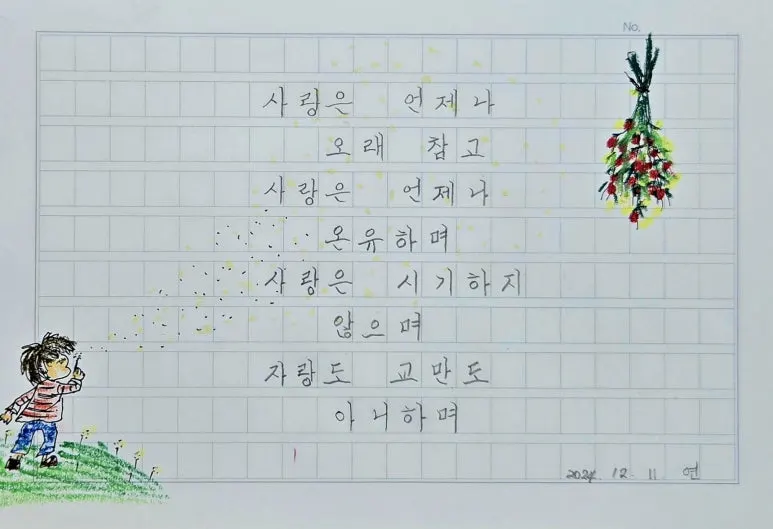 No.
사랑은 언제나
오래 참고
사랑은 언제나
온유하며
사랑은 시기하지
않으며
자랑도 교만도
아니하며
2024. 12. 11 연